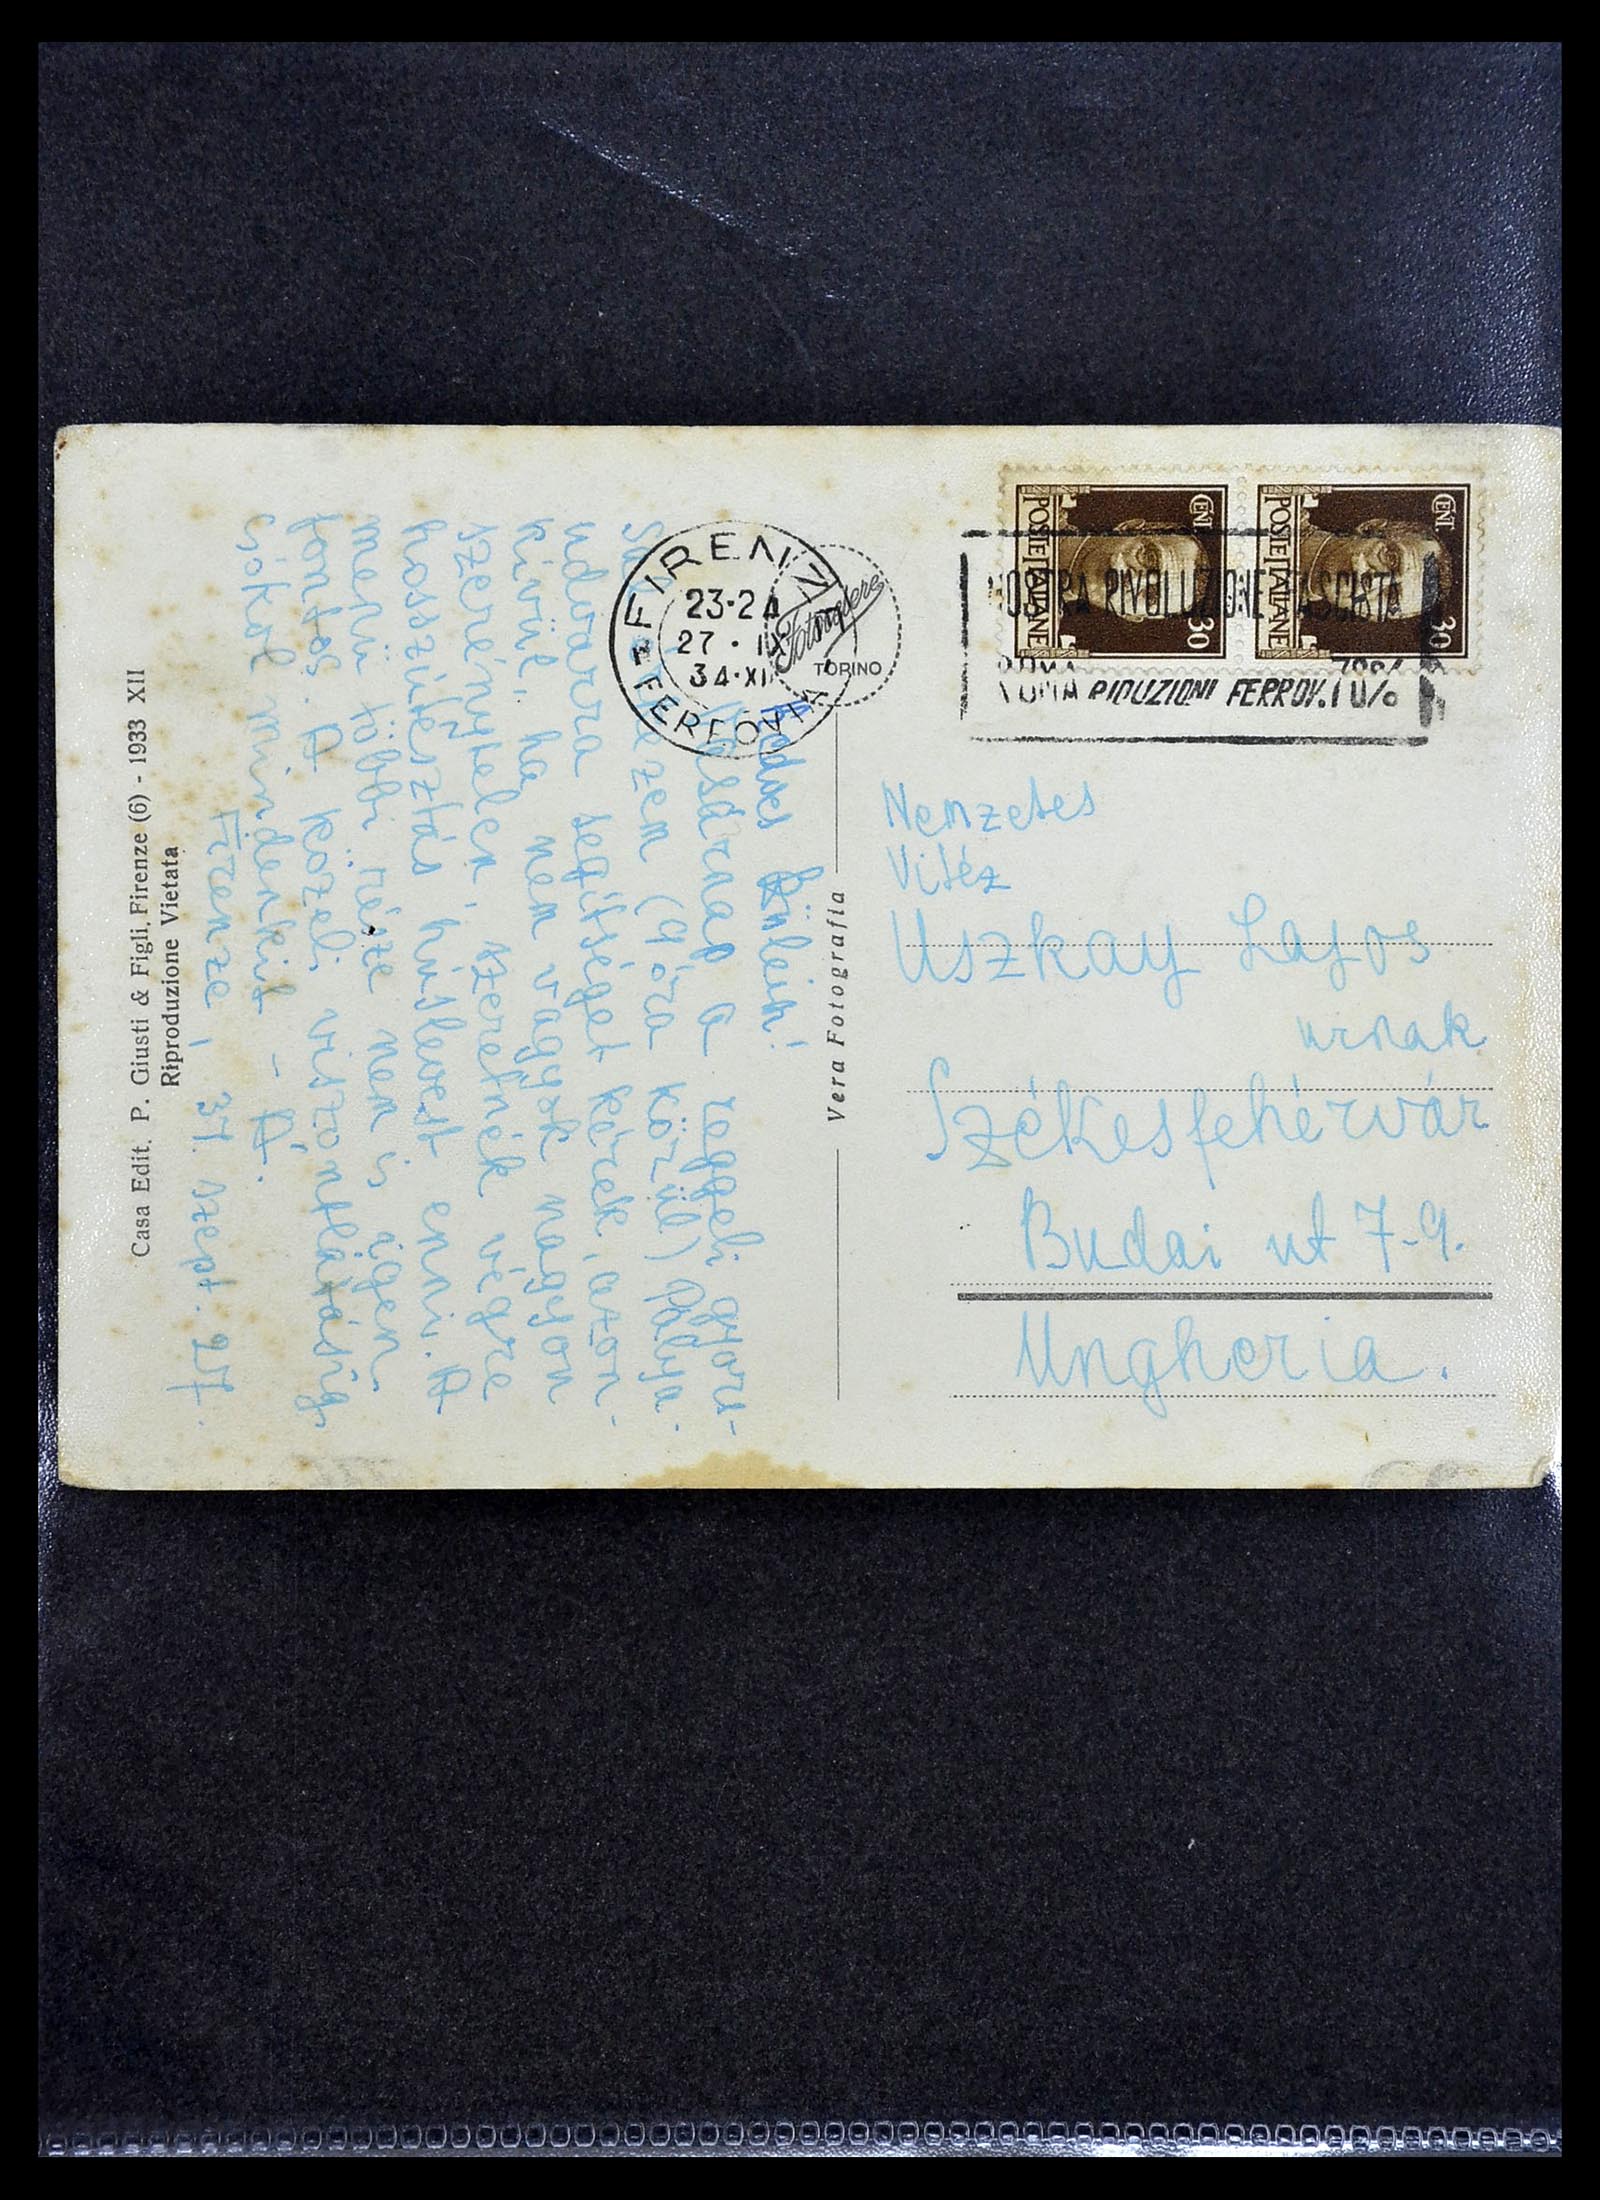 Casa Edit. P. Giusti & Figli, Firenze (6) - 1933 XII
Riproduzione Vietata
Kedves Szüleim!
Vasárnap a reggeli gyors-
(9 óra körül) Pálya-
udvarra segítséget kérek, azon-
kívül, ha nem vagyok nagyon
szerénytelen, szeretnék végre
hosszútésztás húslevest enni. A
menü többi része nem is igen
fontos. A közeli viszontlátásig
csókol mindenkit - A.
Firenze, 34. szept. 27.
Vera Fotografia
Fotocelere
TORINO
FIRENZE
23-24
27 · IX
34·XII
FERROVIA
POSTE ITALIANE
CENT 30
POSTE ITALIANE
CENT 30
MOSTRA RIVOLUZIONE FASCISTA
ROMA
ROMA RIDUZIONI FERROV. 70%
Nemzetes
Vitéz
Uszkay Lajos
urnak
Székesfehérvár
Budai ut 7-9.
Ungheria.